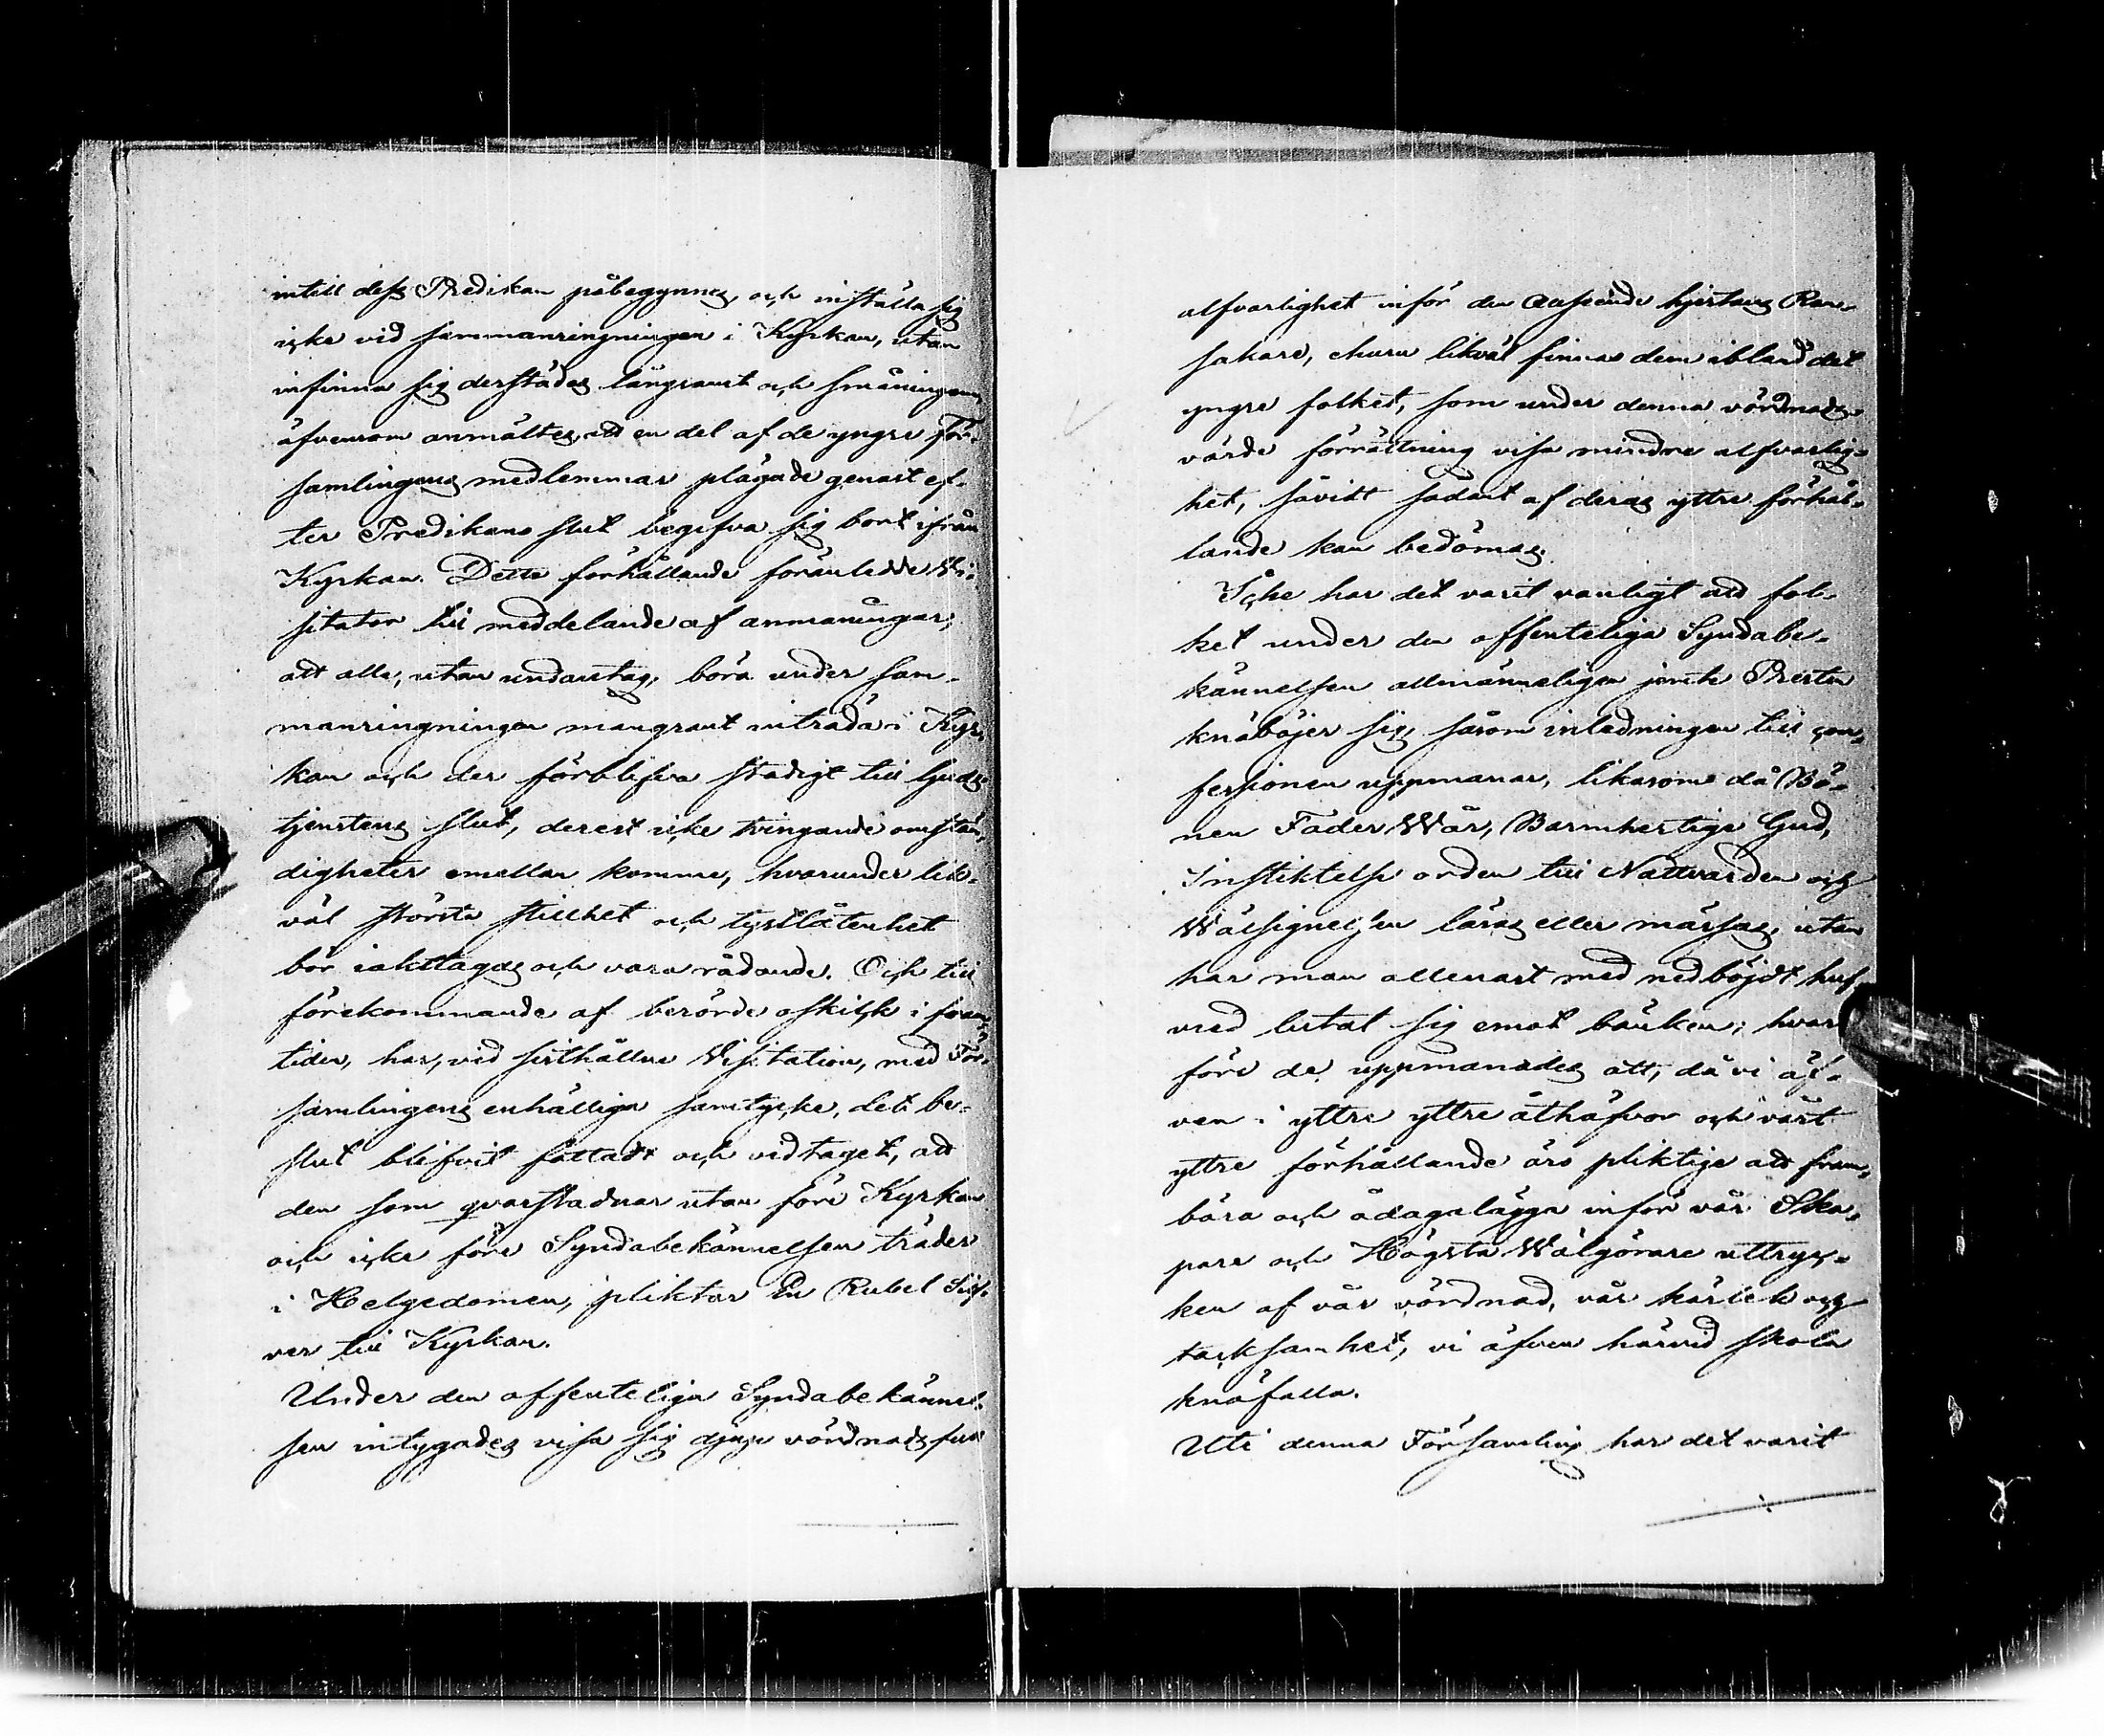 intill dess Predikan påbegynnes, och inställa sig
icke vid sammanringningen i Kyrkan, utan
infinna sig derstädes långsamt och småningom,
äfvensom anmältes att en del af de yngre För-
samlingens medlemmar plägade genast ef-
ter Predikans slut begifva sig bort ifrån
Kyrkan. Detta förhållande föranledde Vi-
sitator till meddelande af anmaningar,
att alla, utan undantag, böra under sam-
manringningen mangrant inträda i Kyr-
kan och der förblifva stadigt till Guds
tjenstens slut, derest icke tvingande omstän-
digheter emellan komma, hvarunder lik-
väl största stillhet och tystlåtenhet
bör iakttagas och vara rådande. Och till
förekommande af berörde oskick i fram-
tiden, har, vid sisthållne Visitation, med För-
samlingens enhälliga samtycke, det be-
slut blifvit fattadt och vidtaget, att
den som qvarstadnar utan före Kyrkan
och icke före Syndabekännelsen träder
i Helgedomen, pliktar En Rubel Silf-
ver till Kyrkan.
Under den offenteliga Syndabekännel-
sen intygades visa sig djup vördnadsfull
alfvarlighet inför den allseende hjertans Ran-
sakare, ehuru likväl finnas dem ibland det
yngre folket, som under denna vördnads-
värde förrättning visa mindre alfvarlig-
het, såvidt sådant af deras yttre förhål-
lande kan bedömas.
Icke har det varit vanligt att fol-
ket under den offenteliga Syndabe-
kännelsen allmänneligen jemte Presten
knäböjer sig, såsom inledningen till con-
fessionen uppmanar, likasom då Bö-
nen Fader Wår, Barmhertige Gud,
Instiktelse orden till Nattvarden och
Wälsignelsen läras eller mässas, utan
har man allenast med nedböjdt huf-
vud lutat sig emot bänken; hvar-
före de uppmanades att, då vi äf-
ven i yttre yttre åthäfvor och vårt
yttre förhållande äro pliktige att fram-
bära och ådagalägga inför vår Ska-
pare och Högsta Wälgörare uttryc-
ken af vår vördnad, vår kärlek och
tacksamhet, vi äfven härvid skola
knäfalla.
Uti denna Församling har det varit